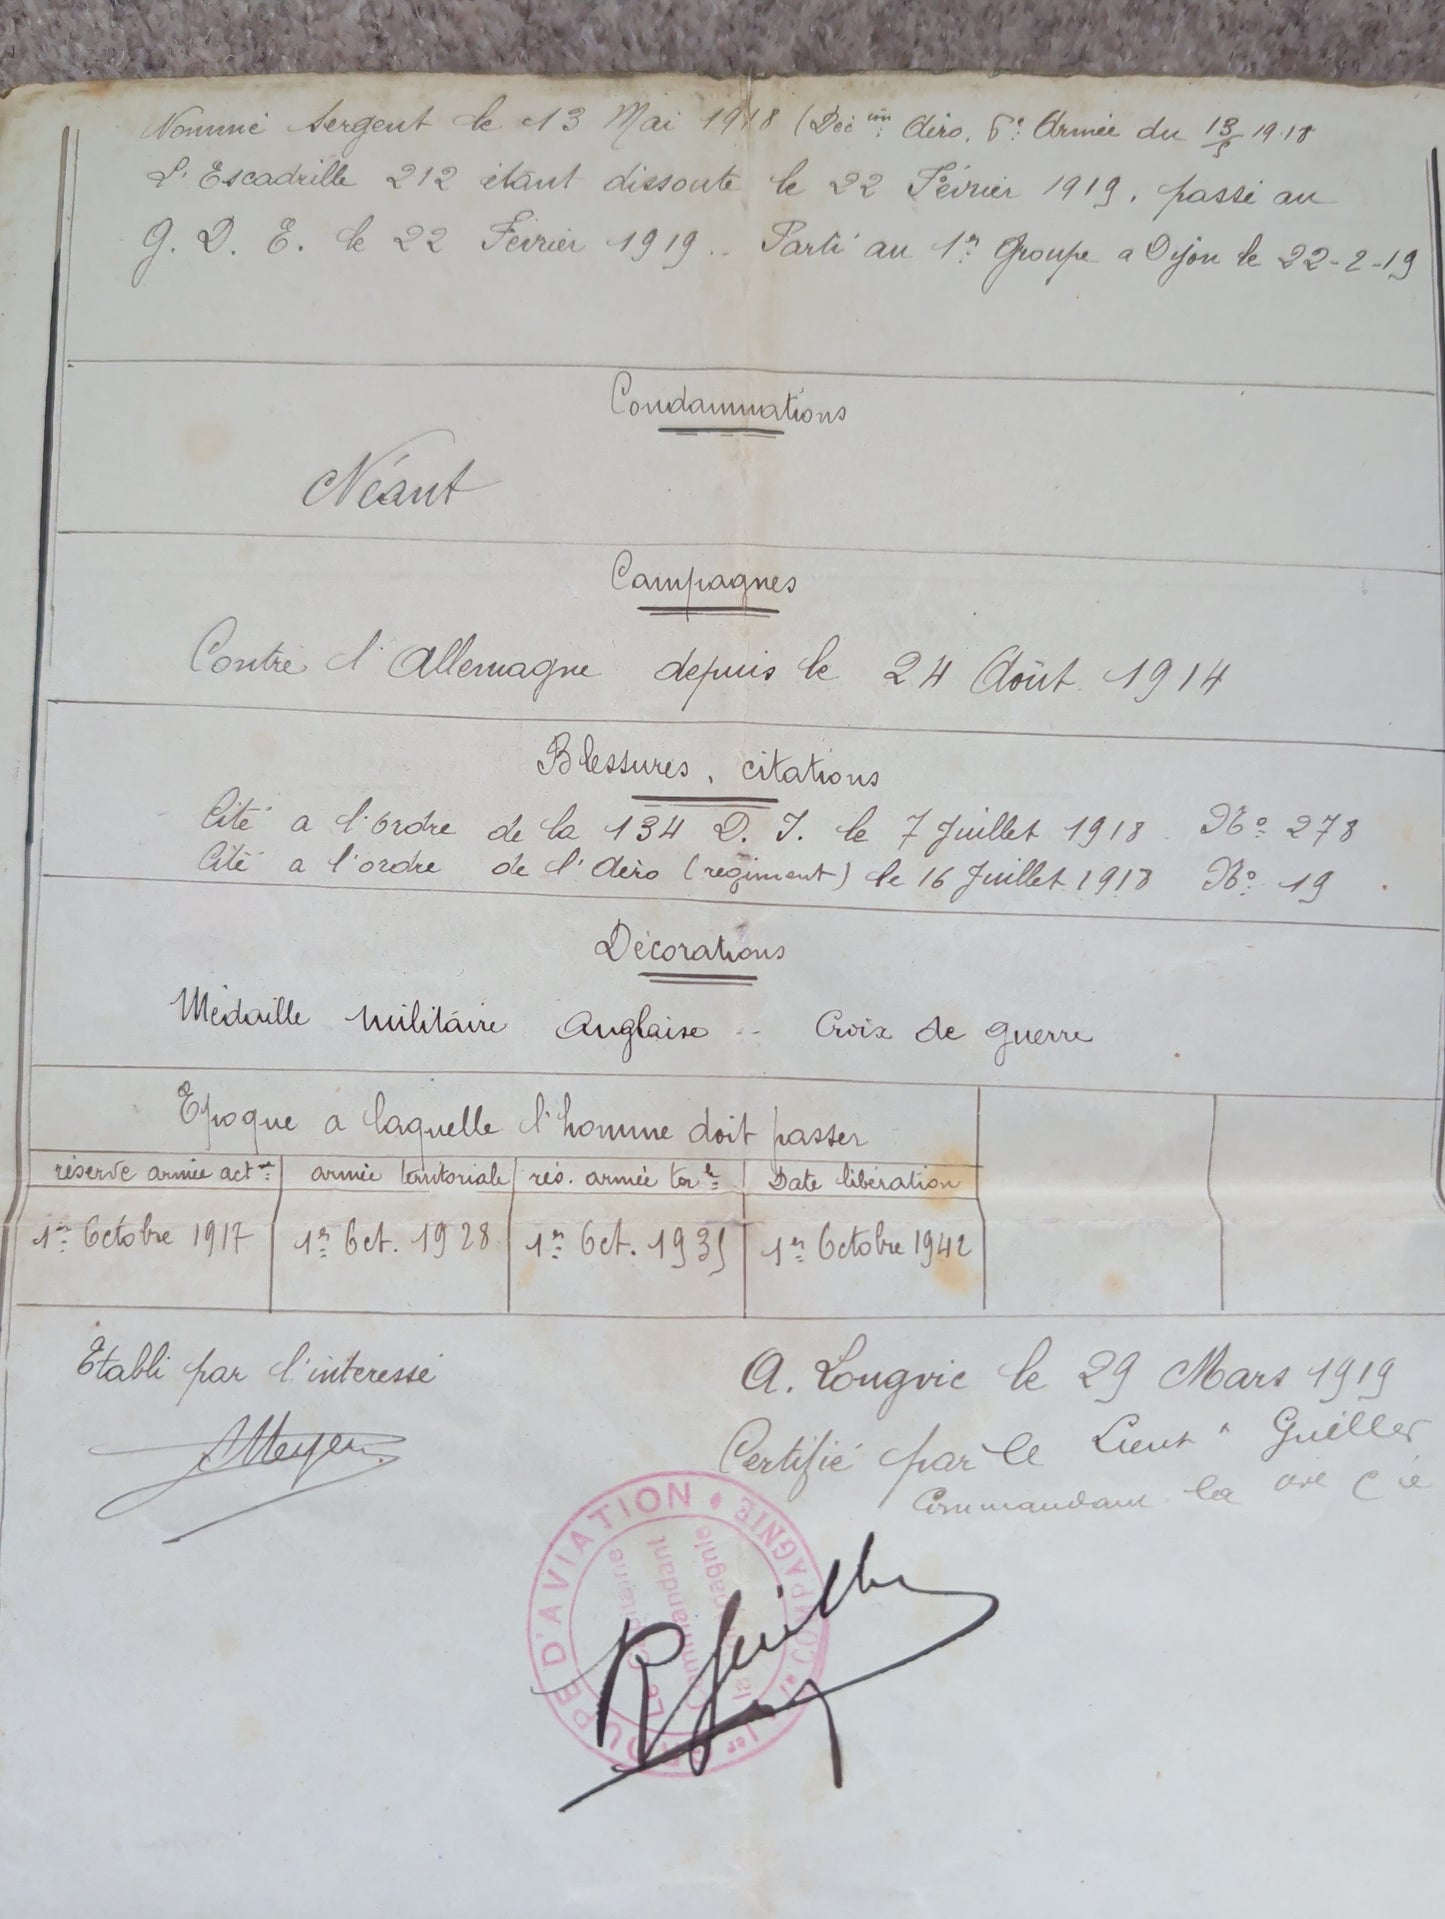 Nommé Sergent le 13 Mai 1918 (Décion Aéro. 6e Armée du 13/5 1918
L'Escadrille 212 étant dissoute le 22 Février 1919, passé au
G. D. E. le 22 Février 1919 .. Parti au 1er Groupe a Dijon le 22-2-19
Condamnations
Néant
Campagnes
Contre l'Allemagne depuis le 24 Août 1914
Blessures, citations
Cité a l'ordre de la 134 D. I. le 7 Juillet 1918 No 278
Cité a l'ordre de l'Aéro (régiment) le 16 Juillet 1918 No 19
Décorations
Médaille militaire Anglaise -- Croix de guerre
Epoque a laquelle l'homme doit passer
réserve armée actve armée territoriale rés. armée terle Date libération
1er Octobre 1917 1er Oct. 1928 1er Oct. 1935 1er Octobre 1942
Etabli par l'interessé
A. Longvic le 29 Mars 1919
AMeyer
Certifié par le Lieut Guiller
Commandant la Cie
1er GROUPE D'AVIATION • 1re COMPAGNIE
Le Capitaine
Commandant
la Compagnie
RGuiller